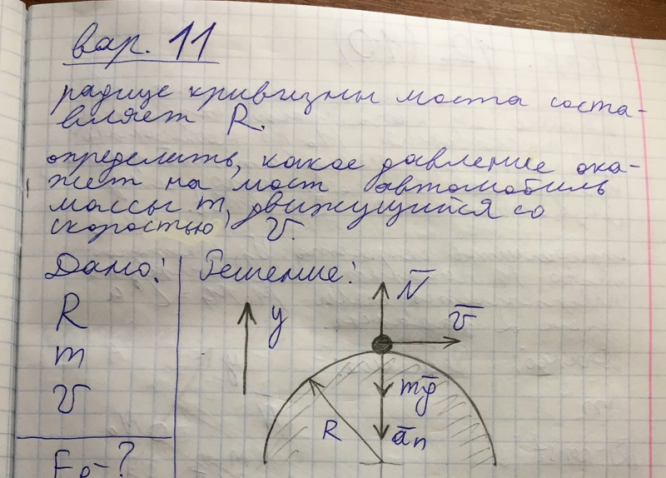 вар. 11
радиус кривизны моста соста-
вляет R.
определить, какое давление ока-
жет на мост автомобиль
массы m, движущийся со
скоростью v.
Дано: Решение:
R
m
v
F₀-?
y
N̅
v̅
mg̅
R
a̅n